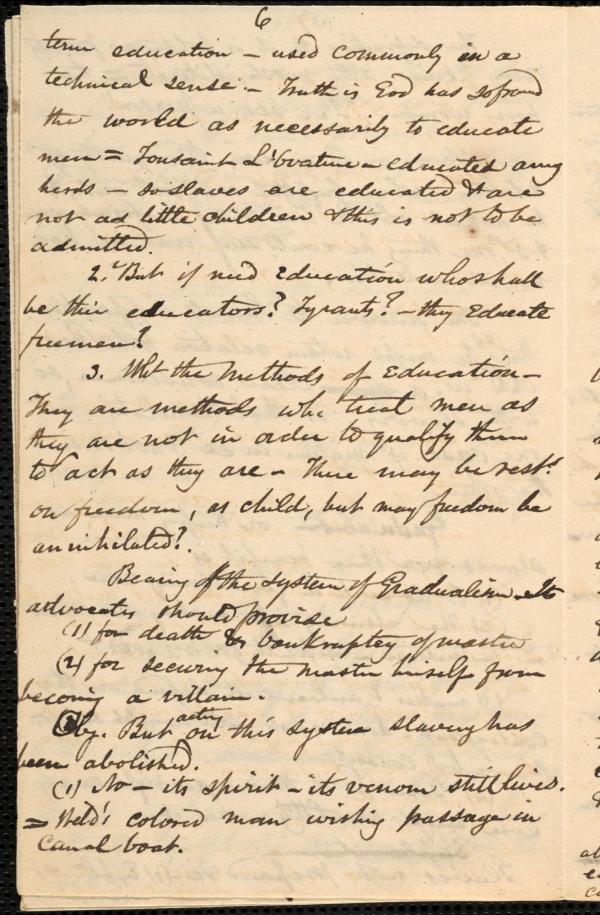 6
term education – used commonly in a
technical sense. – Truth is God has so framd
the world as necessarily to educate
men = Tousaint L'Ovature – educated amg
herds – so slaves are educated & are
not as little children & this is not to be
admitted.
2. But if need education who shall
be their educators? Tyrants? – they Educate
freemen?
3. Wht the Methods of Education –
They are methods whc treat men as
they are not in order to qualify them
to act as they are – There may be rest.
on freedom, as child, but may freedom be
annihilated?.
Bearing of the system of Gradualism – Its
advocates should provide
(1) for death & bankruptcy of master
(2) for securing the master himself from
becoming a villain.
Obj. But acting on this system slavery has
been abolished.
(1) No – its spirit – its venom still lives.
= Weld's colored man wishing passage in
Canal boat.